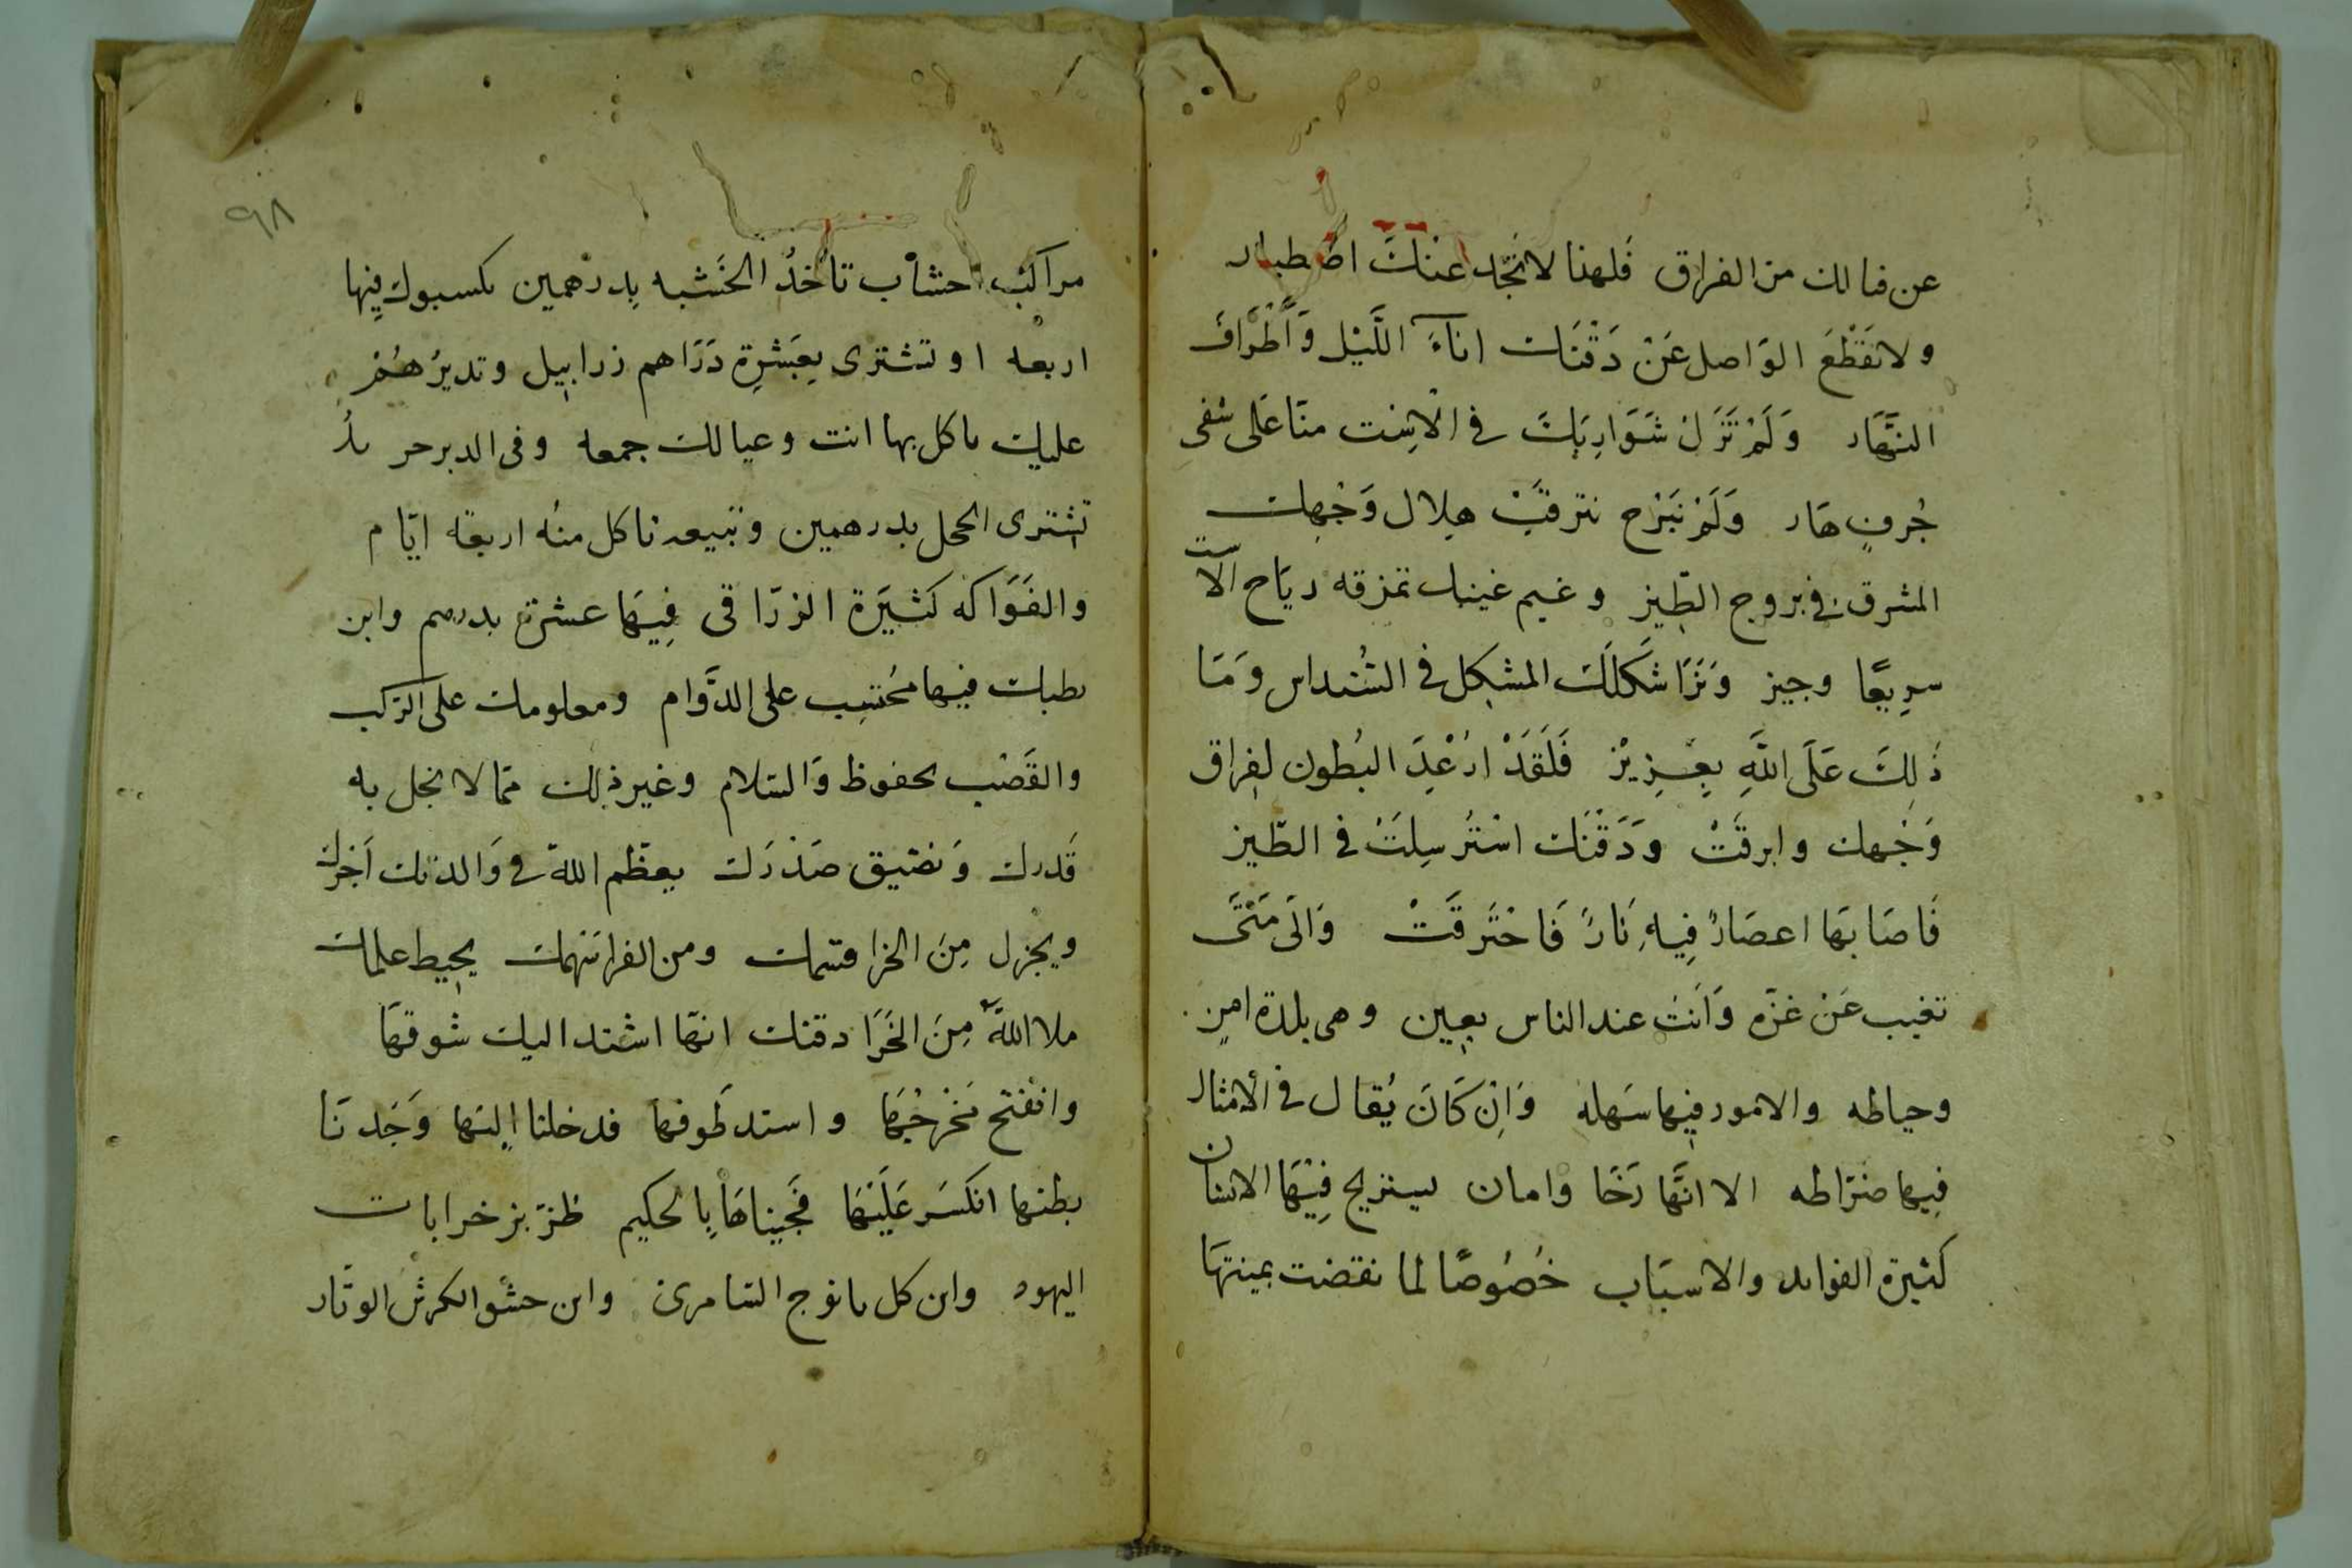 عن فنالك من الفراق فَلهذا لا نَجد عنكَ اصطبار
ولا نَقْطَعَ الوَاصل عَنْ دَقْنَك اناءَ اللَّيْل وَأَطْرَافَ
النَّهَار وَلَمْ تَزَل شَوَارِبَكَ في الاِست منّا عَلى شفى
جُرفٍ هَار وَلَمْ نَبْرَح نترقّبْ هِلال وَجْهِك
المشرق في بروج الطّيز وغيم غيبك تمزقه ريَاح الاست
سرِيعًا وجيز وَنَرَا شكلَكَ المشكِل في الشُنداس وَمَا
ذَلِكَ عَلَى اللَّهِ بِعَزِيزْ فَلَقَدْ ارْعْدَ البُطون لفِراق
وَجْهك وابرقَتْ وَدَقْنَك اسْتُرسِلَتْ في الطّيز
فَاصَابَهَا اعصَارٌ فِيهِ نَارٌ فَاحْتَرقَتْ وَالَى مَتَى
تغيب عَنْ غزّه وَانَت عند الناس بعِين وهى بلدة امنٍ
وحياطه والامور فيها سَهلة وَاِنْ كَانَ يُقال في الأمثال
فِيها ضرّاطه الا انَّها رَخَا وَامان يستريح فِيْهَا الانسان
كثيرة الفوايد والاسبَاب خُصُوصًا لما نقضت بمينتهَا
٩٨
مراكب احشاب تاخدُ الخشبه بِدرهمين مكسبوك فِيها
اربعه او تشترى بِعَشرِة دَرَاهم زرابيل وتديرُهُمْ
عليك تاكل بها انت وعيالك جمعه وفى الدبر حر
تشترى الحمل بدرهمين وتبيعه تاكل منه اربعَة ايّام
والفَوَاكه كثيَرة الزرّاقى فِيهَا عشرة بدرهم وابن
بطبك فيها مُحتسِب على الدَّوام ومعلومك على الركب
والقَصْب محفوظ وَالسّلام وغير ذلك ممّا لا نجل به
قَدرك وَنضيق صَدْرَك يعظّم اللهُ في وَالدتك اَجرك
ويجزل مِنَ الخرا قسمك ومن الفرا سَهمك يحيط علمك
ملا اللهُ مِنَ الخَرَا دقنك انهّا اشتد اليك شوقهَا
وانفتح مَخرجُهَا واستد طَوفها فدخلنا اِليَها وَجَدنَا
بطنها انكسَر عَلَيْهَا فَجيناهَا بِالحكيم طزبز خرابات
اليهود وابن كل بانوج السّامرىّ وابن حشو الكرش الوتّار